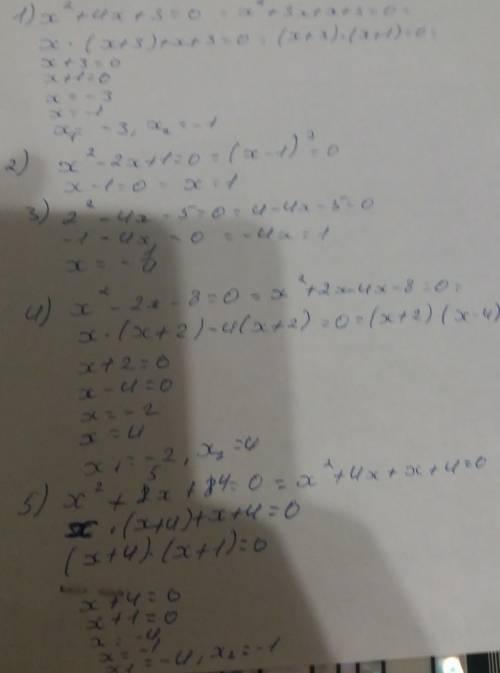 1) x² + 4x + 3 = 0 = x² + 3x + x + 3 = 0 =
x · (x+3) + x + 3 = 0 = (x+3) · (x+1) = 0 =
x + 3 = 0
x + 1 = 0
x = -3
x = -1
x₁ = -3, x₂ = -1
2) x² - 2x + 1 = 0 = (x - 1)² = 0
x - 1 = 0 = x = 1
3) 2² - 4x - 5 = 0 = 4 - 4x - 5 = 0
-1 - 4x - 0 = -4x = 1
x = -
4) x² - 2x - 8 = 0 = x² + 2x - 4x - 8 = 0 =
x · (x+2) - 4(x+2) = 0 = (x+2)(x-4)
x + 2 = 0
x - 4 = 0
x = -2
x = 4
x₁ = -2, x₂ = 4
5) x² + 5x + 4 = 0 = x² + 4x + x + 4 = 0
x · (x+4) + x + 4 = 0
(x+4) · (x+1) = 0
x + 4 = 0
x + 1 = 0
x = -4
x = -1
x₁ = -4, x₂ = -1